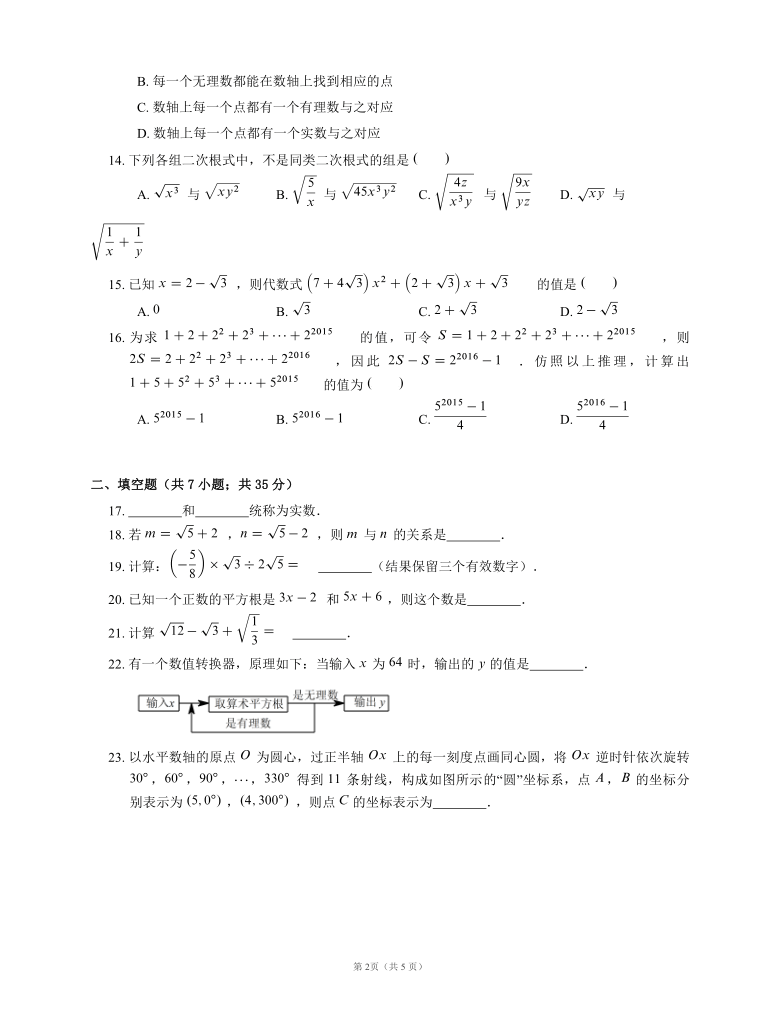 B. 每一个无理数都能在数轴上找到相应的点
C. 数轴上每一个点都有一个有理数与之对应
D. 数轴上每一个点都有一个实数与之对应
14. 下列各组二次根式中，不是同类二次根式的组是 (　　)
A. √(x³) 与 √(xy²)　　B. √(5/x) 与 √(45x³y²)　　C. √(4z/(x³y)) 与 √(9x/(yz))　　D. √(xy) 与
√(1/x + 1/y)
15. 已知 x = 2 − √3 ，则代数式 (7 + 4√3) x² + (2 + √3) x + √3 的值是 (　　)
A. 0　　B. √3　　C. 2 + √3　　D. 2 − √3
16. 为求 1 + 2 + 2² + 2³ + ⋯ + 2²⁰¹⁵ 的值，可令 S = 1 + 2 + 2² + 2³ + ⋯ + 2²⁰¹⁵ ，则
2S = 2 + 2² + 2³ + ⋯ + 2²⁰¹⁶ ，因此 2S − S = 2²⁰¹⁶ − 1 ．仿照以上推理，计算出
1 + 5 + 5² + 5³ + ⋯ + 5²⁰¹⁵ 的值为 (　　)
A. 5²⁰¹⁵ − 1　　B. 5²⁰¹⁶ − 1　　C. (5²⁰¹⁵ − 1)/4　　D. (5²⁰¹⁶ − 1)/4
二、填空题（共 7 小题；共 35 分）
17. ________和________统称为实数．
18. 若 m = √5 + 2 ，n = √5 − 2 ，则 m 与 n 的关系是________．
19. 计算：(−5/8) × √3 ÷ 2√5 = ________（结果保留三个有效数字）．
20. 已知一个正数的平方根是 3x − 2 和 5x + 6 ，则这个数是________．
21. 计算 √12 − √3 + √(1/3) = ________．
22. 有一个数值转换器，原理如下：当输入 x 为 64 时，输出的 y 的值是________．
输入x 取算术平方根 是无理数 输出 y
是有理数
23. 以水平数轴的原点 O 为圆心，过正半轴 Ox 上的每一刻度点画同心圆，将 Ox 逆时针依次旋转
30°，60°，90°，⋯，330° 得到 11 条射线，构成如图所示的“圆”坐标系，点 A，B 的坐标分
别表示为 (5, 0°) ，(4, 300°) ，则点 C 的坐标表示为________．
第 2页（共 5 页）